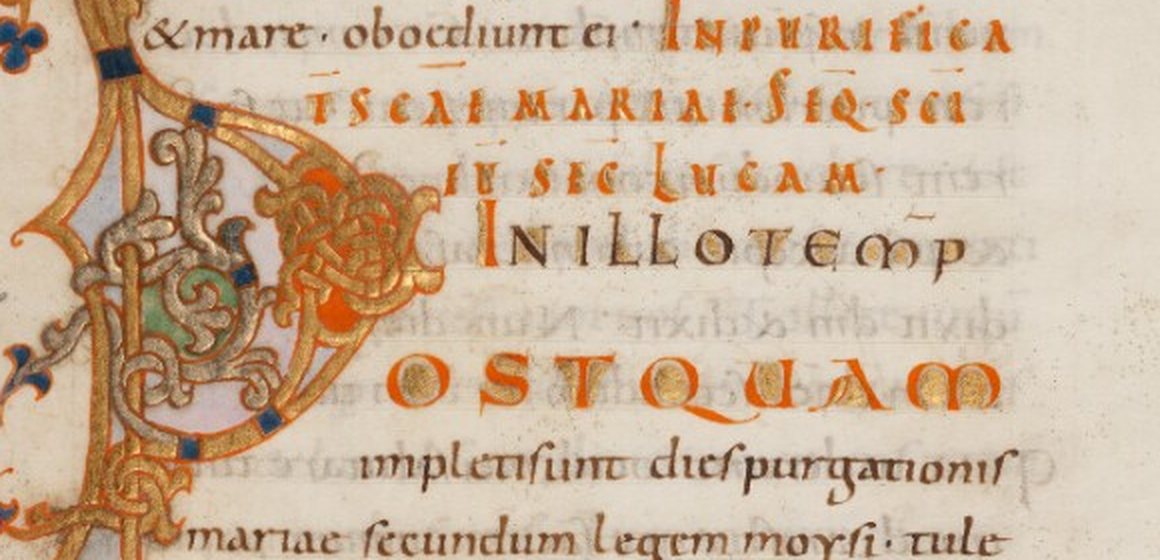 & mare · oboediunt ei · IN PURIFICA
T SCAE MARIAE · SEQ SCI
EU SEC LUCAM ·
IN ILLO TEMP̄
POSTQUAM
impleti sunt dies purgationis
mariae secundum legem moysi · tule